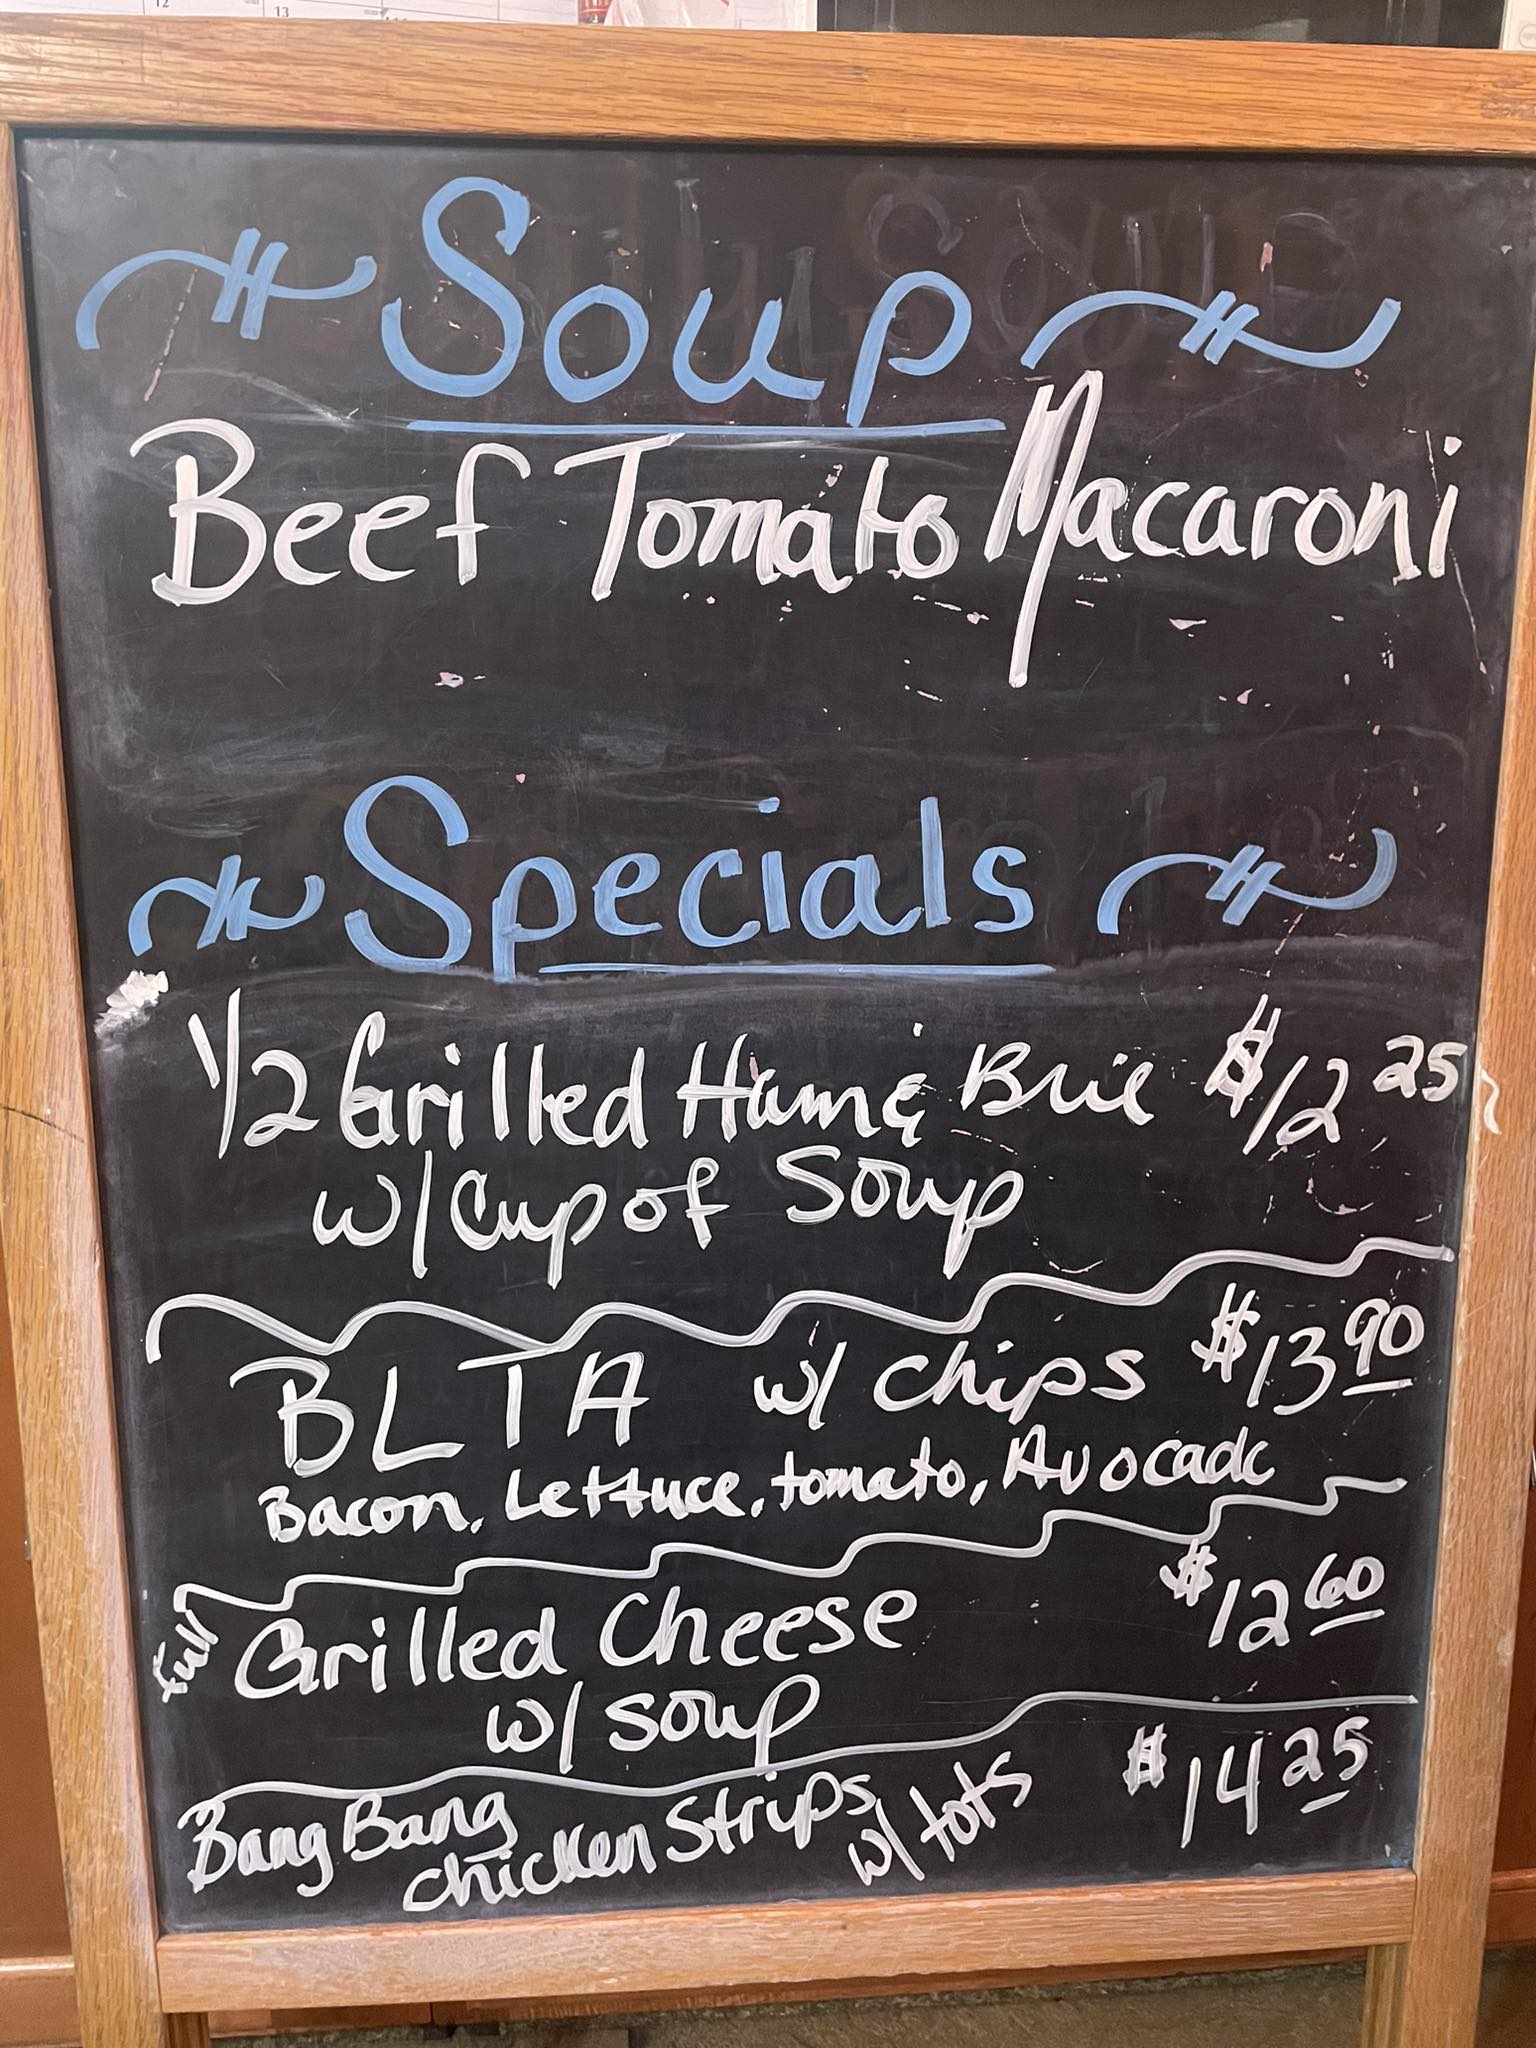 12
13
Soup
Beef Tomato Macaroni
Specials
1/2 Grilled Ham & Brie $12 25
w/ Cup of Soup
BLTA w/ chips $13 90
Bacon, Lettuce, tomato, Avocado
Full Grilled Cheese $12 60
w/ soup
Bang Bang $14 25
chicken Strips w/ tots